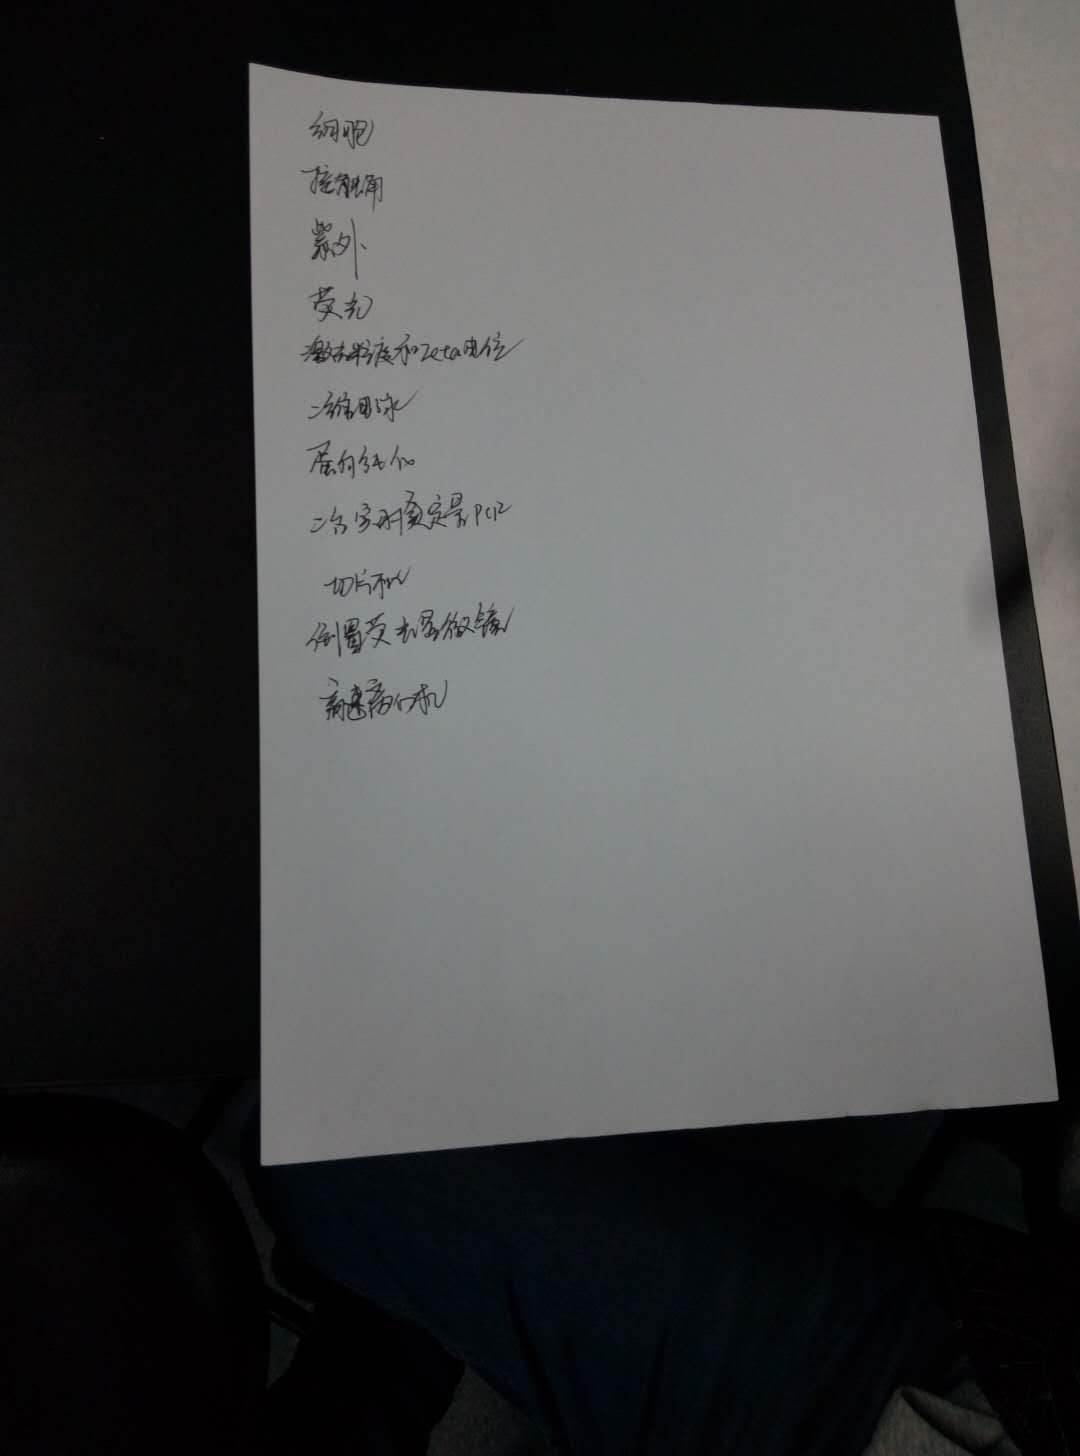 细胞
接触角
紫外
荧光
激光粒度和Zeta电位
二维电泳
蛋白纯化
二台实时荧定量PCR
切片机
倒置荧光显微镜
高速离心机